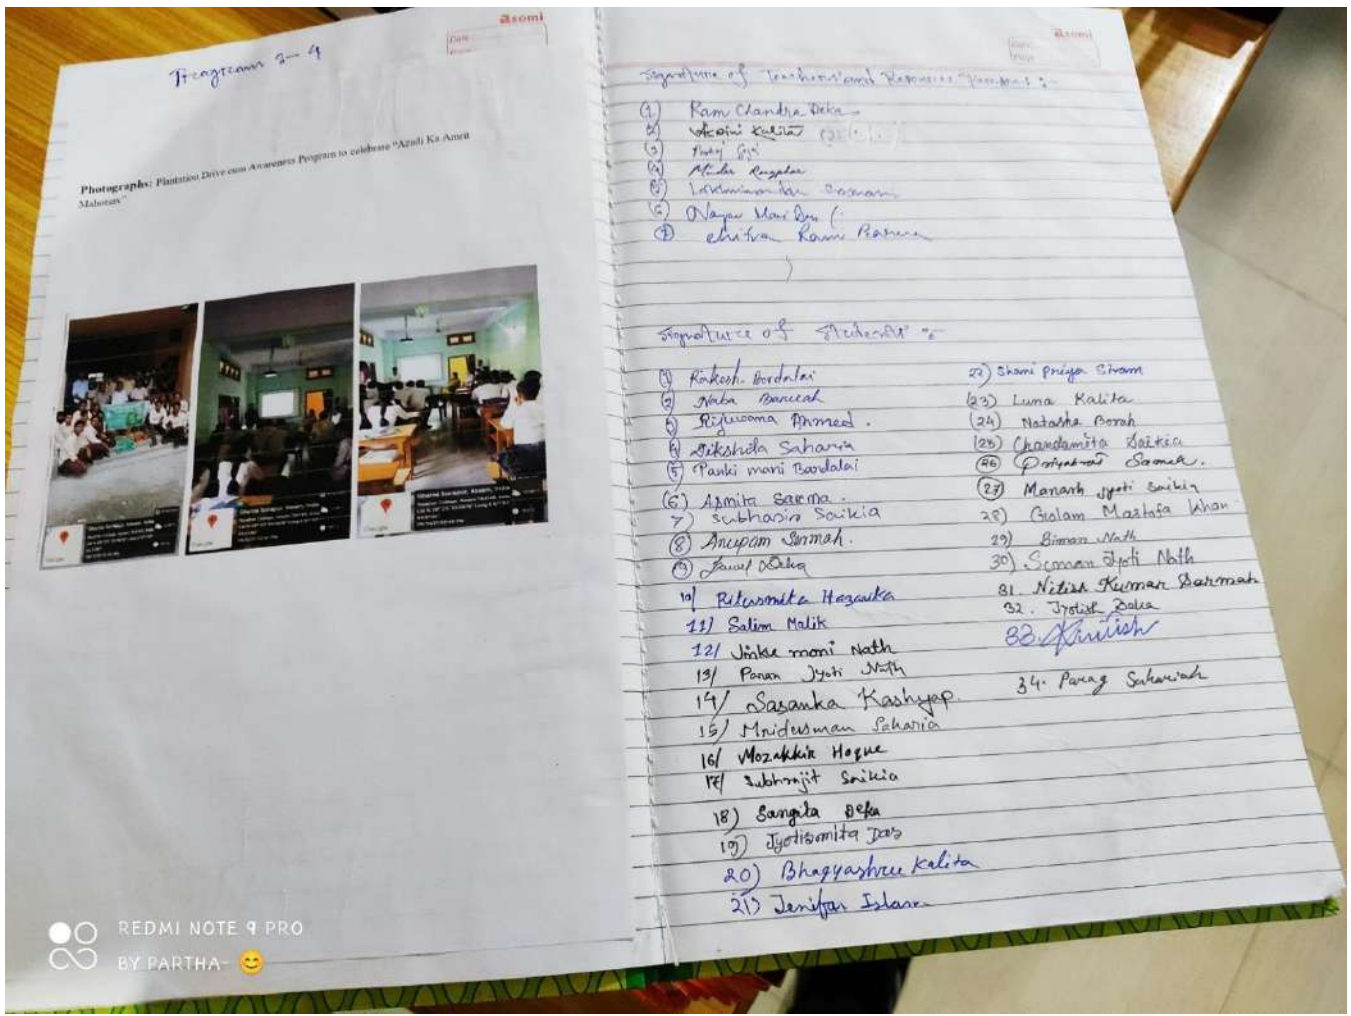 asomi
Date
Program 3-4
Photographs: Plantation Drive cum Awareness Program to celebrate "Azadi Ka Amrit
Mahotsav"
Google
Google
asomi
Date
Page
Signature of Teachers and Resource Persons :-
(1) Ram Chandra Deka
(2) Kalita
(3)
(4)
(5)
(6) Nayan Mani Das
(7) Chitra Rani Barua
Signature of Students :-
(1) Rakesh Bordalai
(2) Naba Baruah
(3) Rijuwana Ahmed.
(4) Dikshida Saharia
(5) Panki mani Bardalai
(6) Asmita Sarma.
7) Subhasis Saikia
(8) Anupam Sarmah.
(9) Deka
10/ Ritusmita Hazarika
11) Salim Malik
12/ Jinkie moni Nath
13/ Paran Jyoti Nath
14/ Sasanka Kashyap.
15/ Mridusman Saharia
16/ Mozakkir Hoque
17/ Subhrajit Saikia
18) Sangita Deka
19) Jyotismita Das
20) Bhagyashree Kalita
21) Jenifar Islam
22) Shami Priya
(23) Luna Kalita
(24) Natasha Borah
(25) Chandamita Saikia
(26)
(27) Manash Jyoti Saikia
28) Golam Mastofa Khan
29) Biman Nath
30) Suman Jyoti Nath
31. Nitish Kumar Sarmah
32. Jyotish Deka
33.
34. Parag Sahariah
REDMI NOTE 9 PRO
BY PARTHA- 😊